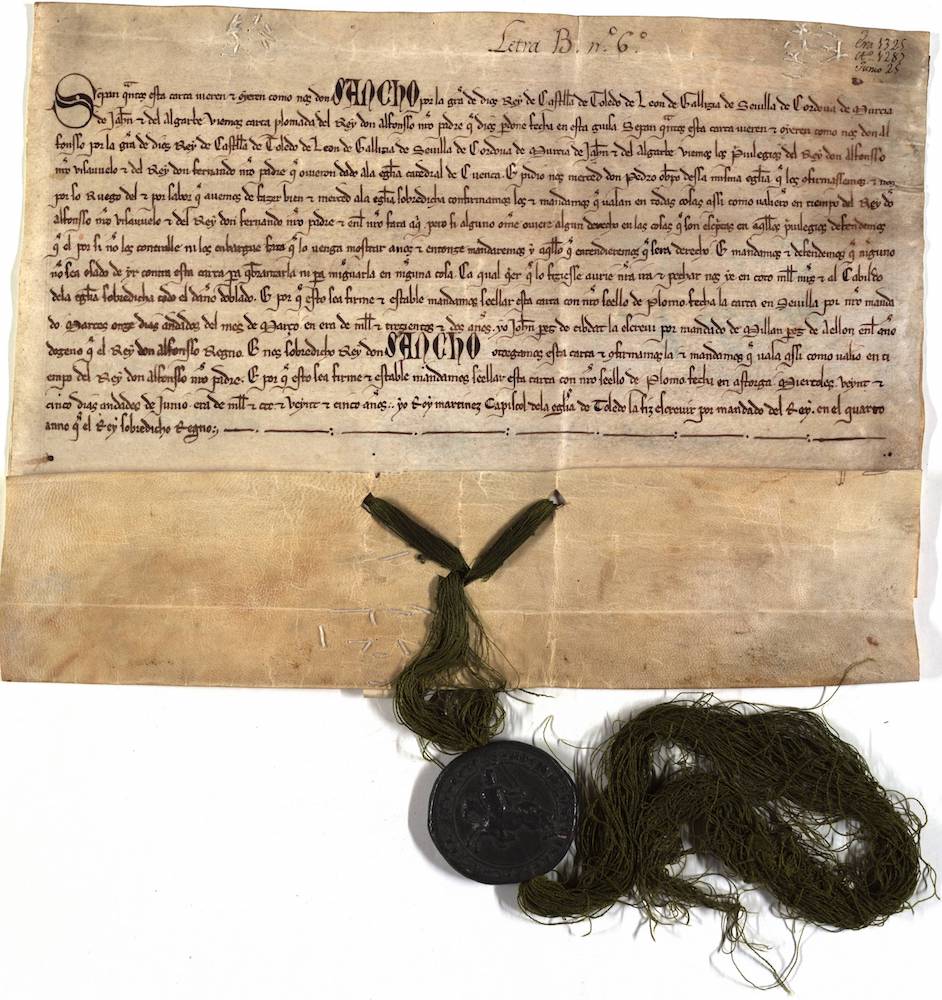 Letra B. nº 6º
Era 1325
Aº 1287
Junio 25
Sepan qntos esta carta uieren & oyeren como nos don SANCHO por la gra de dios Rey de Castiella de Toledo de Leon de Gallizia de Seuilla de Cordoua de Murcia
de Jahn & del algarbe Viemos carta plomada del Rey don alfonsso nro padre q dios pdone fecha en esta guisa Sepan qntos esta carta uieren & oyeren como nos don al
fonsso por la gra de dios Rey de Castiella de Toledo de Leon de Gallizia de Seuilla de Cordoua de Murcia de Jahn & del algarbe Viemos los Priuilegios del Rey don alfonsso
nro visauuelo & del Rey don fernando nro padre q ouieron dado ala eglia catedral de Cuenca. E pidio nos merced don Pedro obpo dessa misma eglia q los ofirmassemos & nos
por lo Ruego del & por sabor q auemos de fazer bien & merced ala eglia sobredicha confirmamos los & mandamos q ualan en todas cosas assi como ualieron en tiempo del Rey do
alfonsso nro visauuelo & del Rey don fernando nro padre & enl nro fata aq. pero si alguno ome ouiere algun derecho en las cosas q son escriptas en aqllos priuilegios defendemos
q el por si no los contralle ni los enbargue fata q lo uenga mostrar a nos & entonze mandaremos y aqllo q entendieremos q sera derecho. E mandamos & defendemos q ninguno
no sea osado de yr contra esta carta pa qbrantarla ni pa minguarla en ninguna cosa. Ca qual qer q lo fiziesse aurie nra ira & pechar nos ye en coto mill mrs & al Cabildo
dela eglia sobredicha todo el daño doblado. E por q esto sea firme & estable mandamos seellar esta carta con nro seello de Plomo. fecha la carta en Seuilla por nro manda
do Martes onze dias andados del mes de Março en era de mill & trezientos & dos años. yo Johan pez de cibdat la escreui por mandado de Millan pez de Aellon enl año
dozeno q el Rey don alfonsso Regno. E nos sobredicho Rey don SANCHO otorgamos esta carta & ofirmamosla & mandamos q uala assi como ualio en ti
empo del Rey don alfonsso nro padre. E por q esto sea firme & estable mandamos seellar esta carta con nro seello de Plomo. fecha en astorga Miercoles. veynt &
cinco dias andados de Junio. era de mill & ccc & veynt & cinco años. yo Roy martinez Capiscol dela eglia de Toledo la fiz escreuir por mandado del Rey. en el quarto
anno q el Rey sobredicho Regno